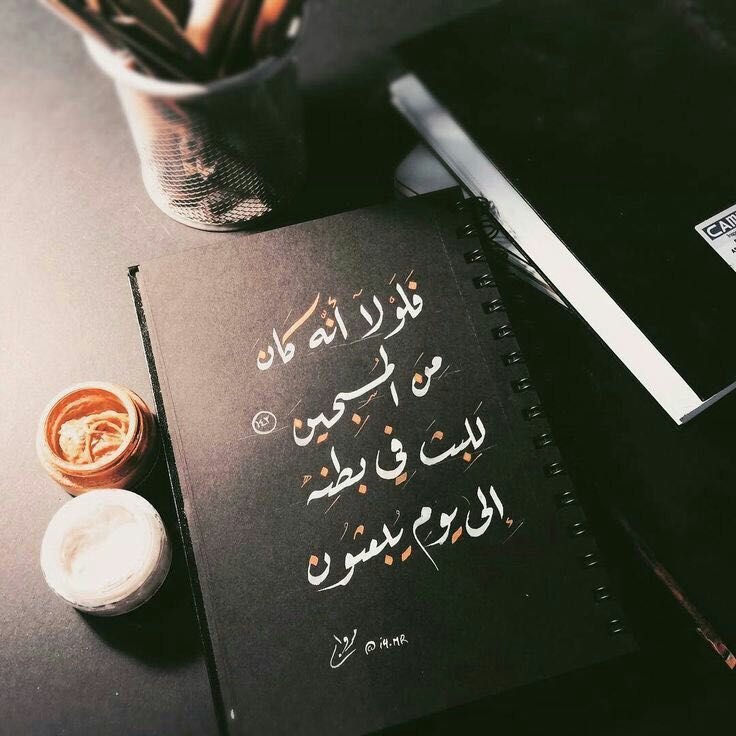 فَلَوْلَآ أَنَّهُ كَانَ
مِنَ المُسَبِّحِينَ ١٤٣
لَلَبِثَ فِي بَطْنِهِ
إِلى يَوْمِ يُبْعَثُونَ
@i4.MR
CAM